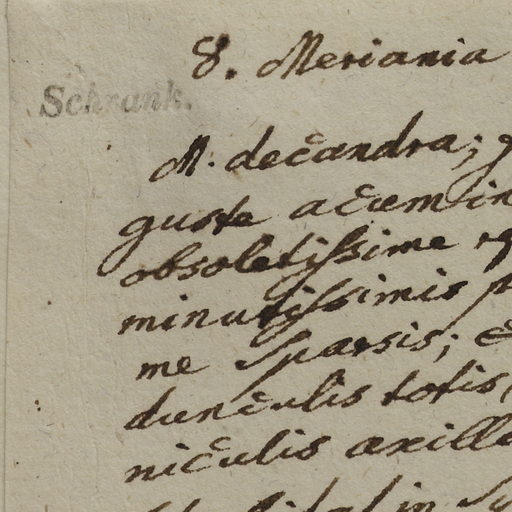 8. Meriania
Schrank.
M. decandra; g
guste acumin
obsoletissime re
minutissimis p
me sparsis; c
dunculis totis,
niculis axilla